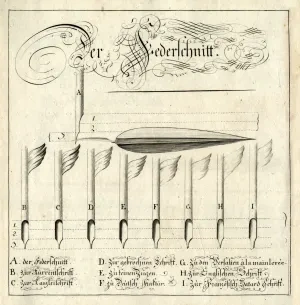 Der Federschnitt.
A
1.
2.
3.
B C D E F G H I
1.
2.
3.
A. der Federschnitt
B. zur Currentschrift
C. zur Canzleischrift
D. Zur gebrochnen Schrift.
E. zu feinen Zügen.
F. zu Deutsch Fractur.
G. zu den Versalien à la
H. zur Englischen Schrift.
I. zur Französisch Batard Schrift.